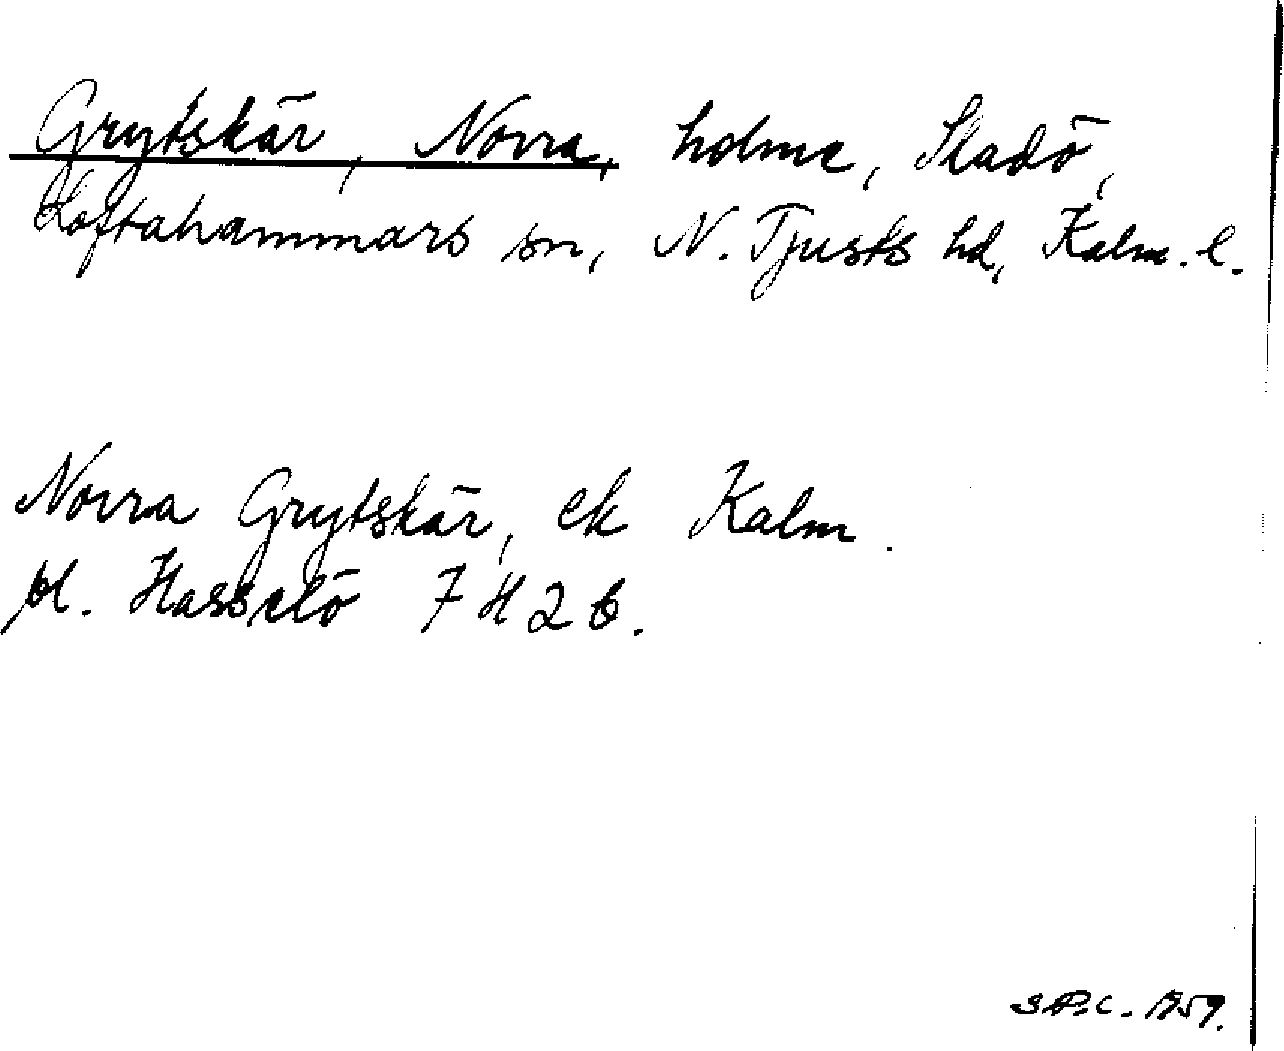 Grytskär, Norra, holme, Sladö,
Loftahammars sn, N. Tjusts hd, Kalm. l.
Norra Grytskär, ek Kalm.
bl. Hasselö 7 H 2 b.
1959.